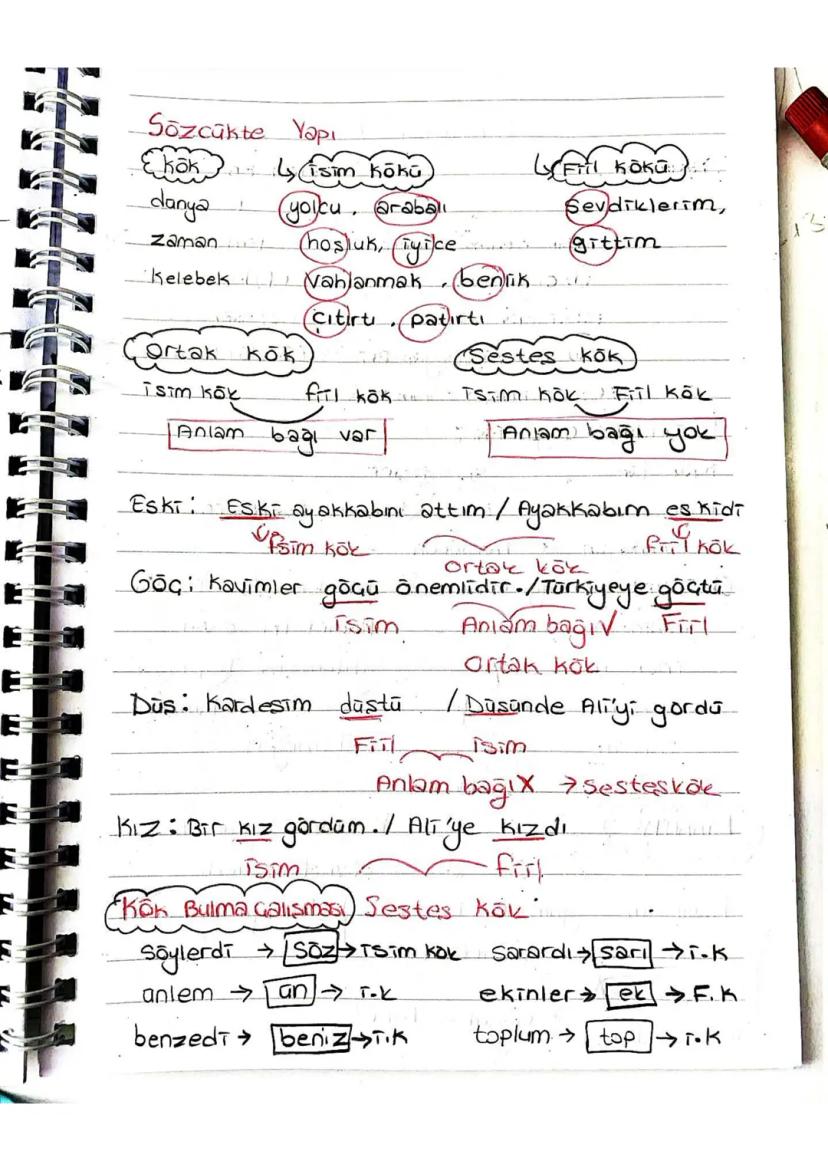 Sözcükte Yapı
Kök ↳ isim kökü ↳ Fiil kökü
dünya yolcu, arabalı sevdiklerim,
zaman hoşluk, iyice gittim
kelebek vahlanmak, benlik
çıtırtı, patırtı
Ortak kök Sesteş kök
isim kök fiil kök isim kök Fiil kök
Anlam bağı var Anlam bağı yok
Eski: Eski ayakkabını attım / Ayakkabım eskidi
isim kök fiil kök
ortak kök
Göç: Kavimler göçü önemlidir. / Türkiyeye göçtü
isim Anlam bağı√ Fiil
Ortak kök
Düş: Kardeşim düştü / Düşünde Ali'yi gördü
Fiil isim
Anlam bağıX → sesteş kök
Kız: Bir kız gördüm. / Ali'ye kızdı
isim fiil
Kök Bulma Çalışması Sesteş kök
söylerdi → söz → isim kök sarardı → sarı → i.k
anlem → an → i.k ekinler → ek → F.k
benzedi → beniz → i.k toplum → top → i.k